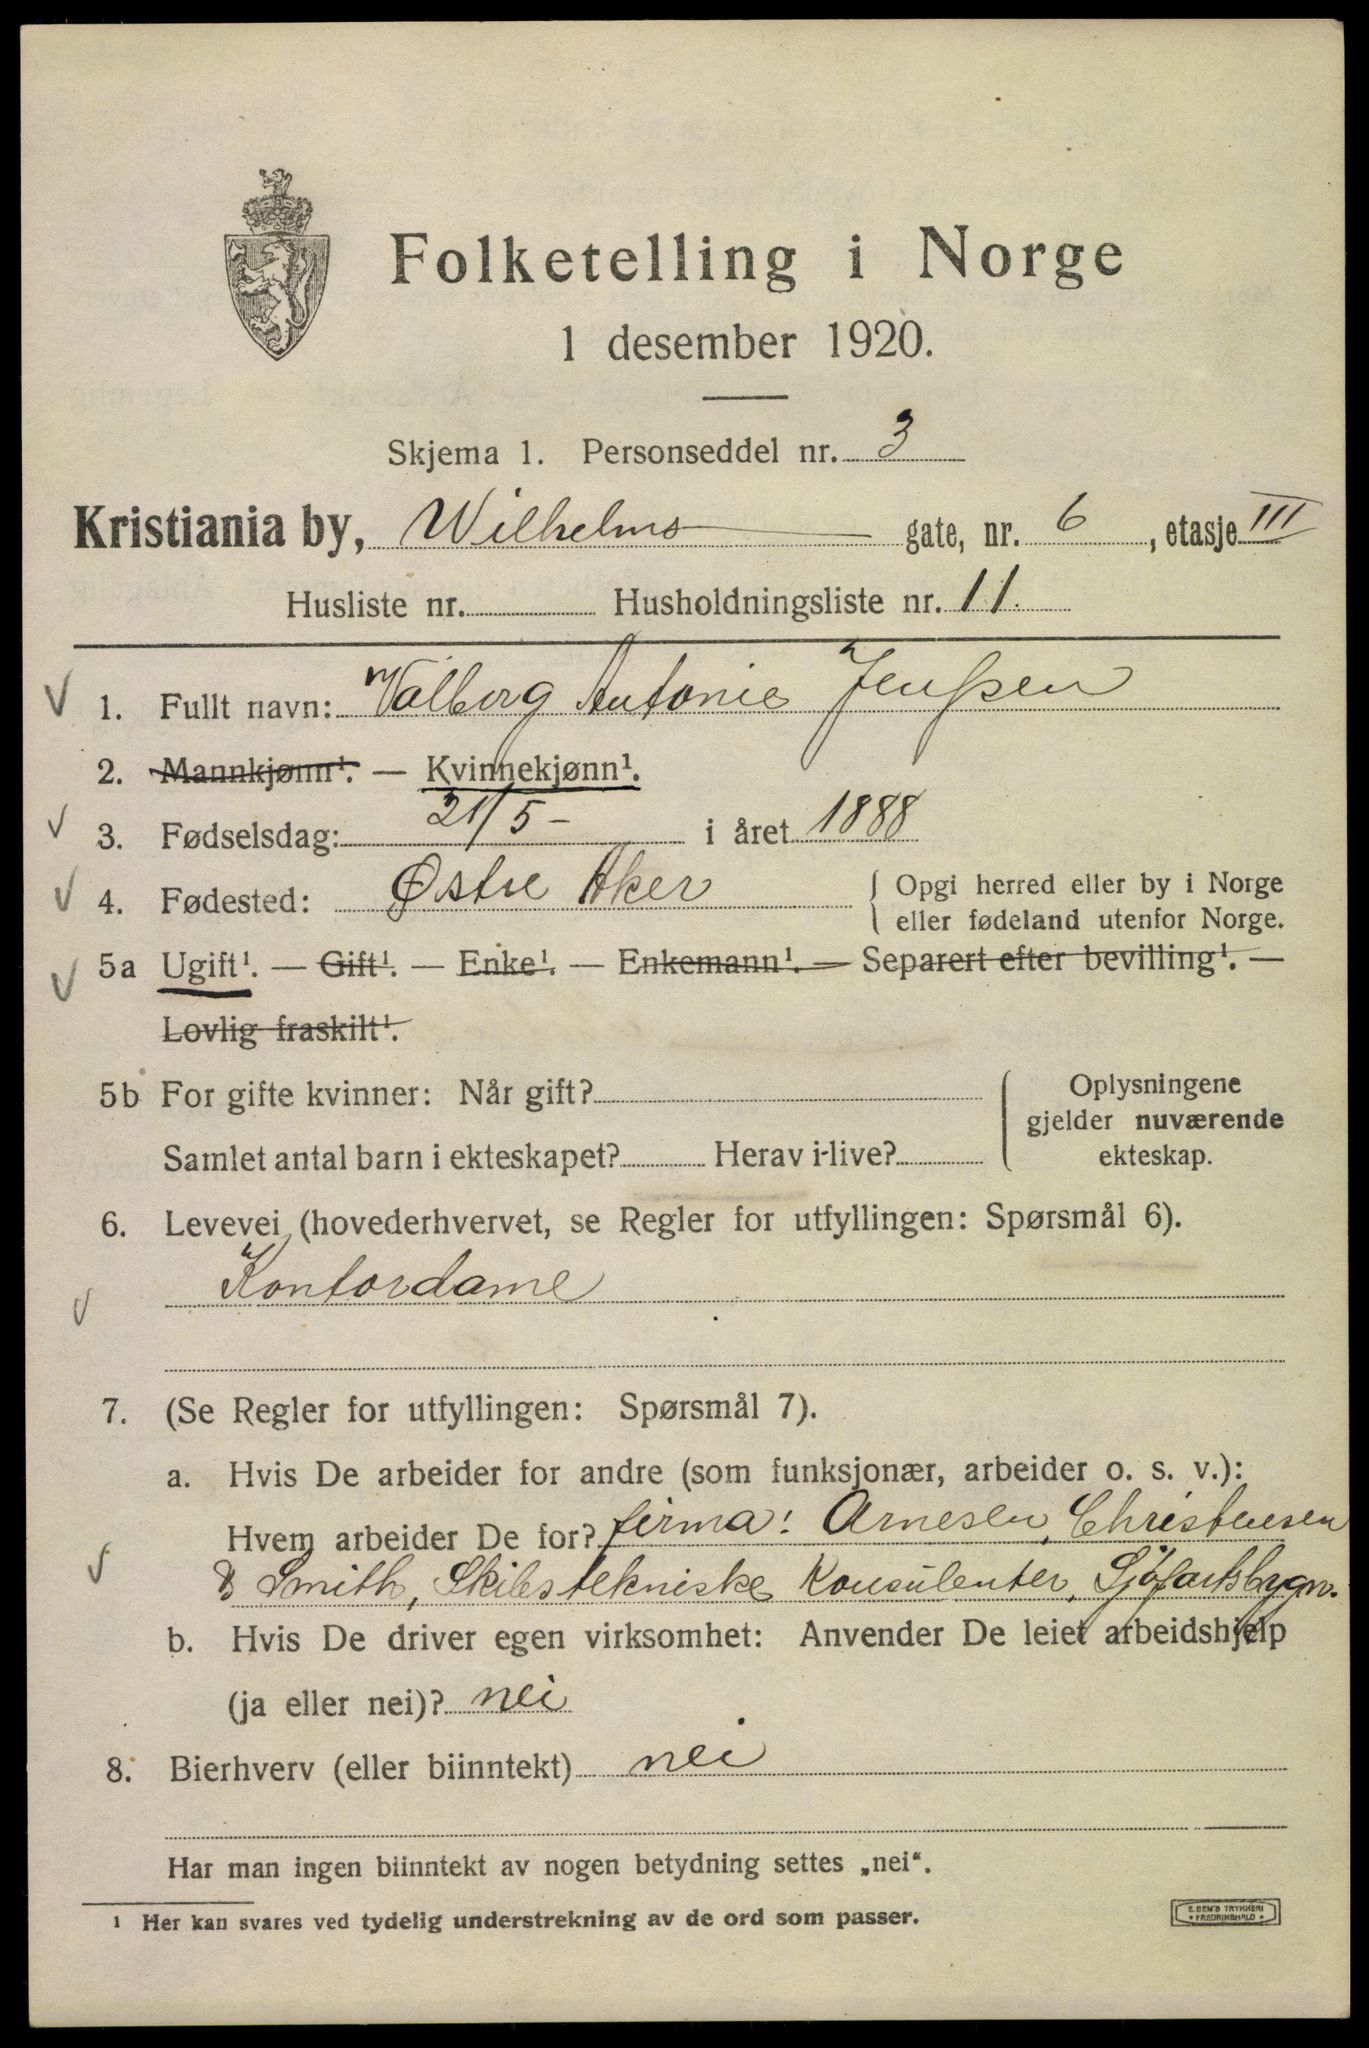 Folketelling i Norge
1 desember 1920.
Skjema 1. Personseddel nr. 3
Kristiania by, Wilhelms gate, nr. 6, etasje III
Husliste nr. Husholdningsliste nr. 11.
1. Fullt navn: Valborg Antonie Jenssen
2. Mannkjønn¹. — Kvinnekjønn¹.
3. Fødselsdag: 21/5 - i året 1888
4. Fødested: Østre Aker { Opgi herred eller by i Norge
eller fødeland utenfor Norge.
5a Ugift¹. — Gift¹. — Enke¹. — Enkemann¹. — Separert efter bevilling¹. —
Lovlig fraskilt¹.
5b For gifte kvinner: Når gift? { Oplysningene
gjelder nuværende
Samlet antal barn i ekteskapet? Herav i live? ekteskap.
6. Levevei (hovederhvervet, se Regler for utfyllingen: Spørsmål 6).
Kontordame
7. (Se Regler for utfyllingen: Spørsmål 7).
a. Hvis De arbeider for andre (som funksjonær, arbeider o. s. v.):
Hvem arbeider De for? firma: Arnesen, Christensen
& Smith, Skibstekniske Konsulenter, Sjøfartsbygn.
b. Hvis De driver egen virksomhet: Anvender De leiet arbeidshjelp
(ja eller nei)? nei
8. Bierhverv (eller biinntekt) nei
Har man ingen biinntekt av nogen betydning settes „nei“.
¹ Her kan svares ved tydelig understrekning av de ord som passer.
E. SEM'S TRYKKERI
• FREDRIKSHALD •